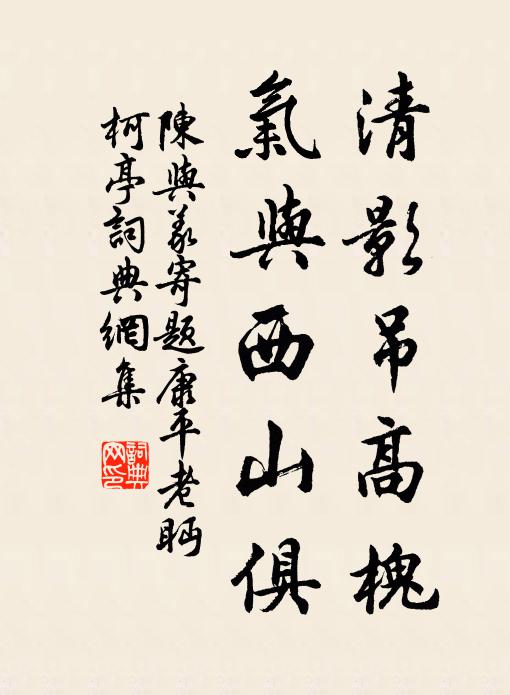 清影吊高槐
氣與西山俱
陳與義寄題康平老眄
柯亭詞典網集
詞典網印